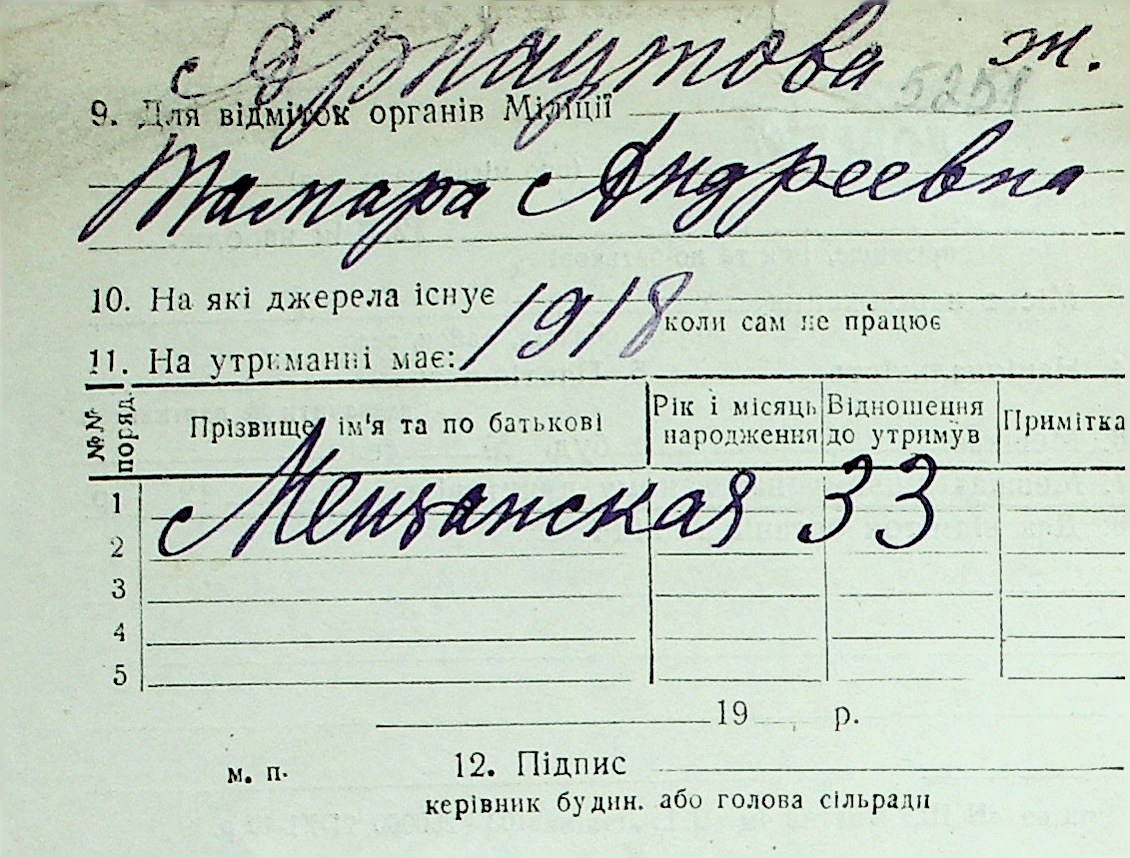 Арнаутова ж.
5251
9. Для відміток органів Міліції
Тамара Андреевна
10. На які джерела існує
1918
коли сам не працює
11. На утриманні має:
№№ поряд.
Прізвище, ім'я та по батькові
Рік і місяць народження
Відношення до утримув
Примітка
Мещанская 33
1
2
3
4
5
19 р.
м. п.
12. Підпис
керівник будин. або голова сільради